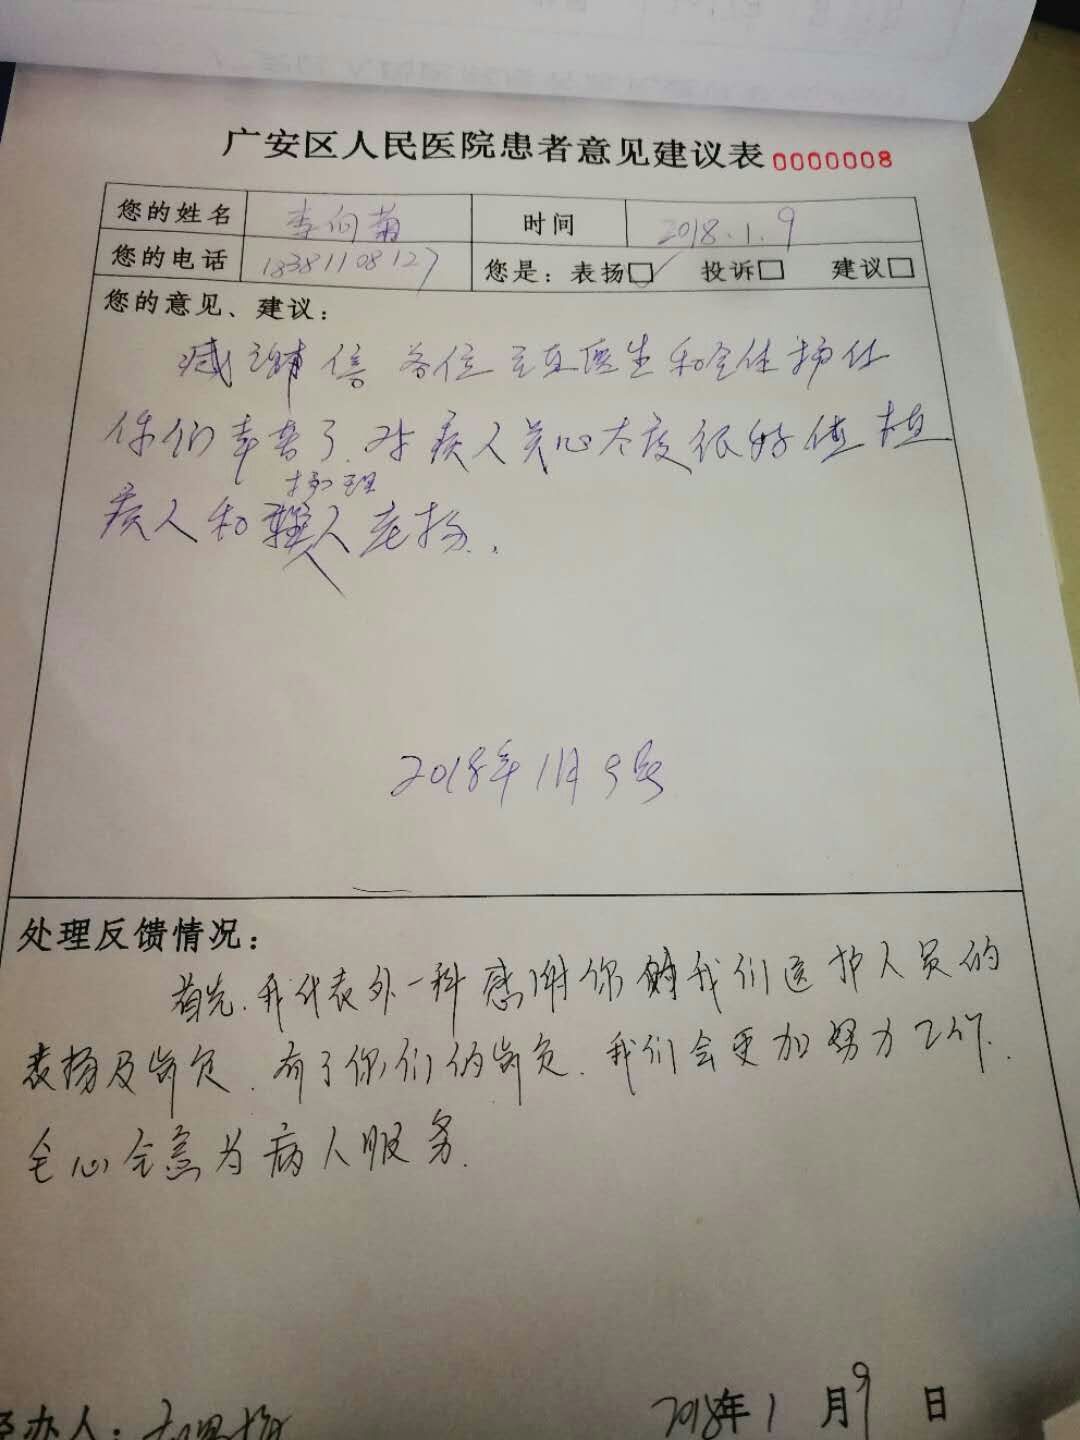 广安区人民医院患者意见建议表 0000008
您的姓名 李向菊 时间 2018.1.9
您的电话 18381108127 您是：表扬□✓ 投诉□ 建议□
您的意见、建议：
感谢信 各位 医生和全体护士
你们幸苦了.对病人关心太度很好值
护理
病人和 人表扬.
2018年1月9号
处理反馈情况：
首先.我代表外一科感谢你对我们医护人员的
表扬及肯定.有了你们的肯定.我们会更加努力工作.
全心全意为病人服务.
办人： 2018年1月9日